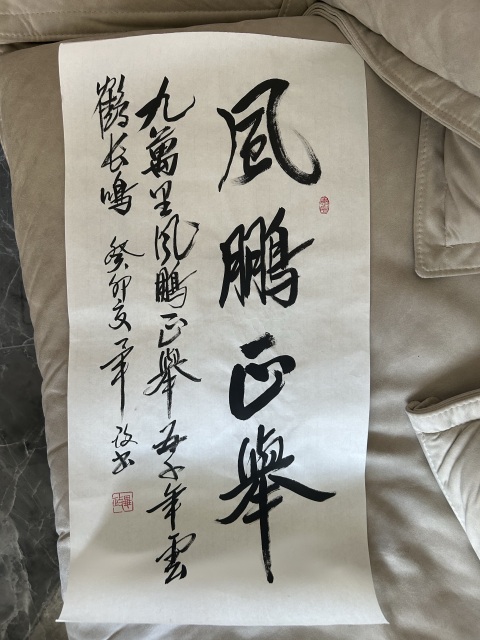 風鵬正舉
九萬里風鵬正舉五千年雲
鶴长鳴 癸卯夏